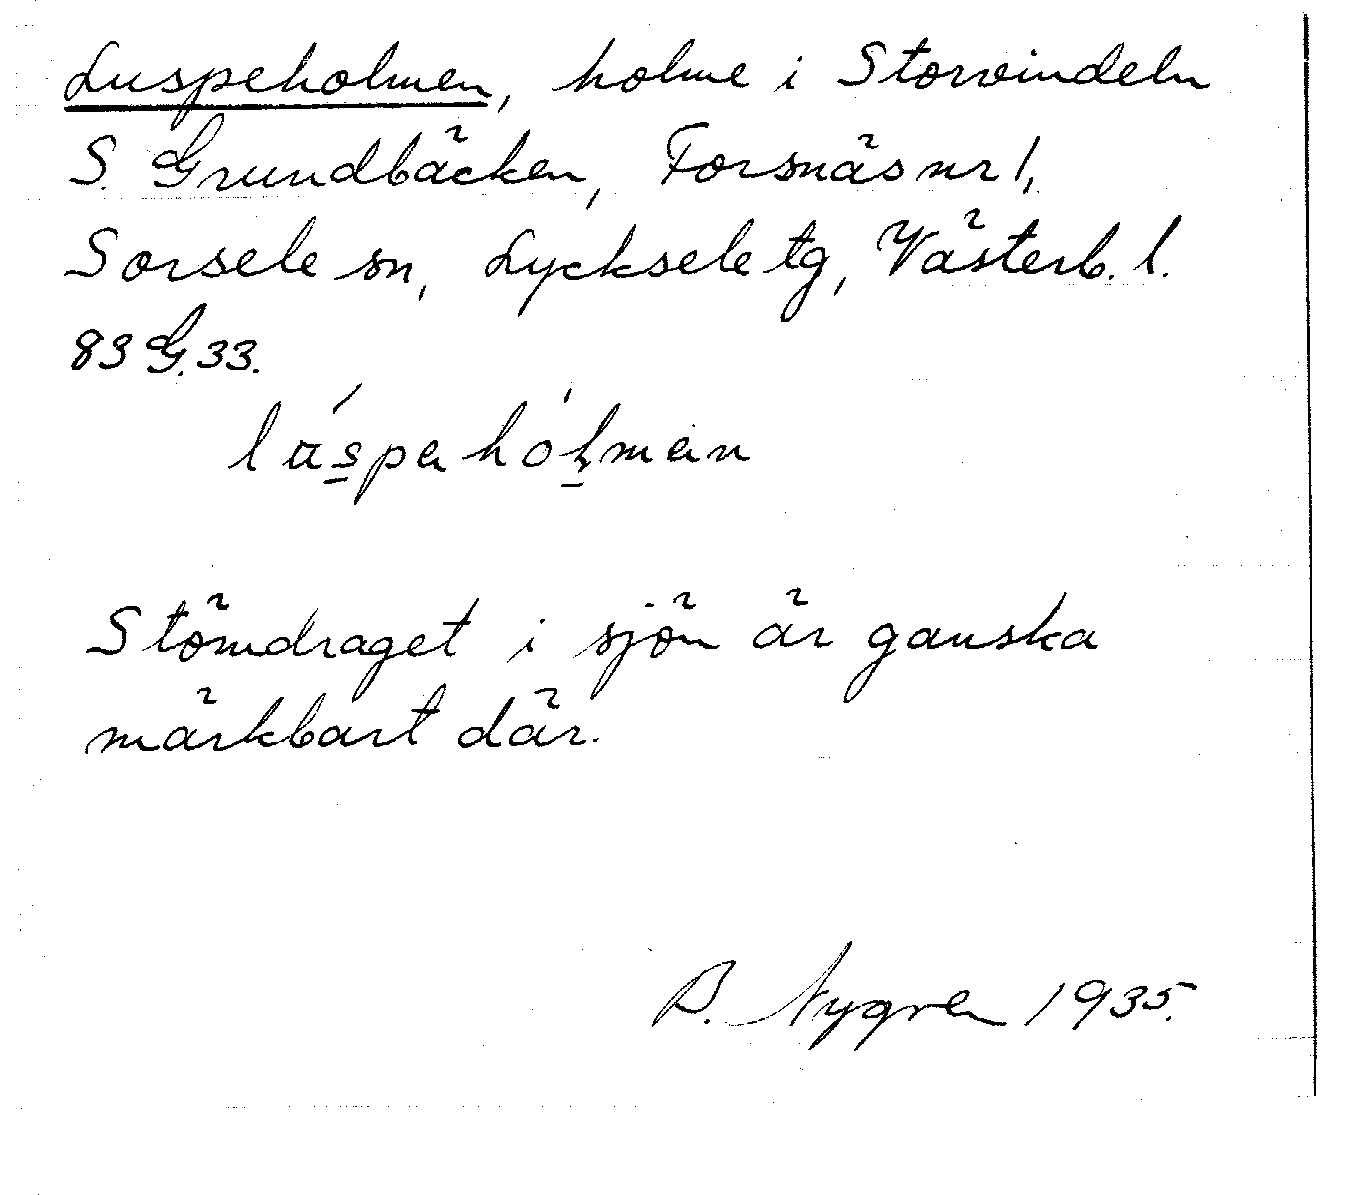 Luspeholmen, holme i Storvindeln
S. Grundbäcken, Forsnäs nr 1,
Sorsele sn, Lycksele tg, Västerb. l.
83 G. 33.
Stömdraget i sjön är ganska
märkbart där.
B. Nygren 1935.